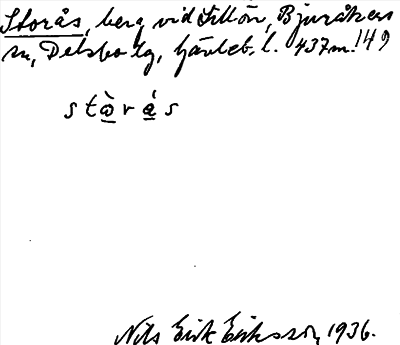 Storås, berg vid Sillön, Bjuråkers
sn, Delsbo tg, Gävleb. l. 437m. 149
stòrás
Nils Erik Eriksson, 1936.